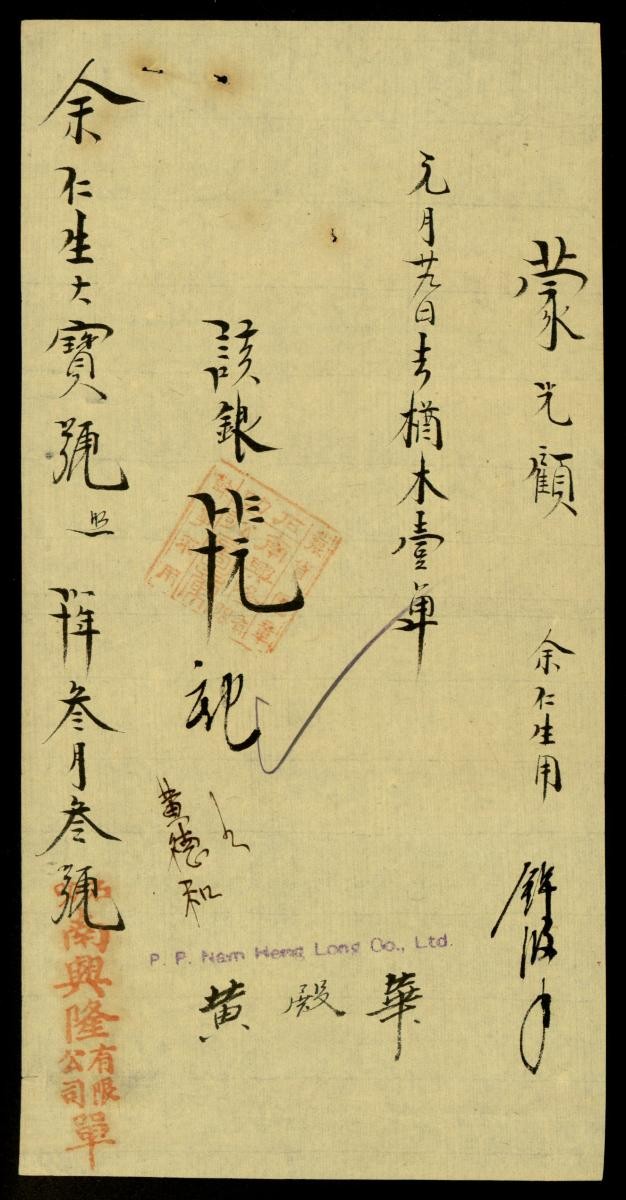 蒙光顧
余仁生用
元月廿九日去楢木壹單
該銀
元
記
黄德和
余仁生大寶號 照
年叁月叁號
P. P. Nam Heng Long Co., Ltd.
黄殿華
南興隆有限公司單